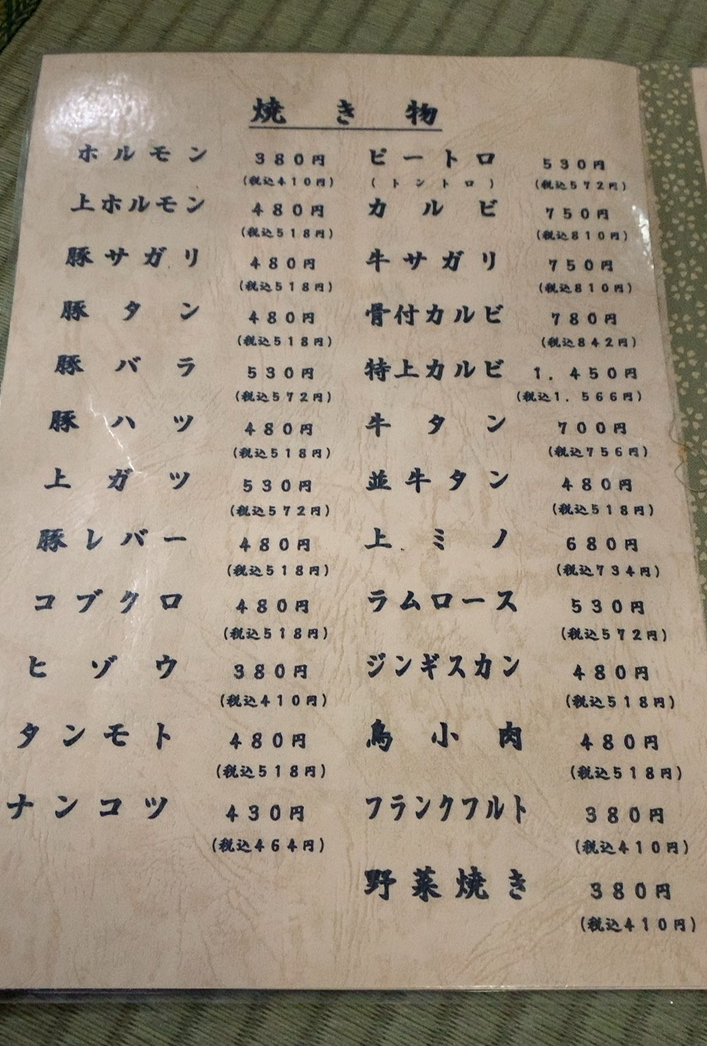 焼き物
ホルモン 380円
(税込410円)
上ホルモン 480円
(税込518円)
豚サガリ 480円
(税込518円)
豚タン 480円
(税込518円)
豚バラ 530円
(税込572円)
豚ハツ 480円
(税込518円)
上ガツ 530円
(税込572円)
豚レバー 480円
(税込518円)
コブクロ 480円
(税込518円)
ヒゾウ 380円
(税込410円)
タンモト 480円
(税込518円)
ナンコツ 430円
(税込464円)
ピートロ 530円
(トントロ) (税込572円)
カルビ 750円
(税込810円)
牛サガリ 750円
(税込810円)
骨付カルビ 780円
(税込842円)
特上カルビ 1.450円
(税込1.566円)
牛タン 700円
(税込756円)
並牛タン 480円
(税込518円)
上ミノ 680円
(税込734円)
ラムロース 530円
(税込572円)
ジンギスカン 480円
(税込518円)
鳥小肉 480円
(税込518円)
フランクフルト 380円
(税込410円)
野菜焼き 380円
(税込410円)